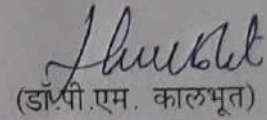 (डॉ.पी.एम. कालभूत)